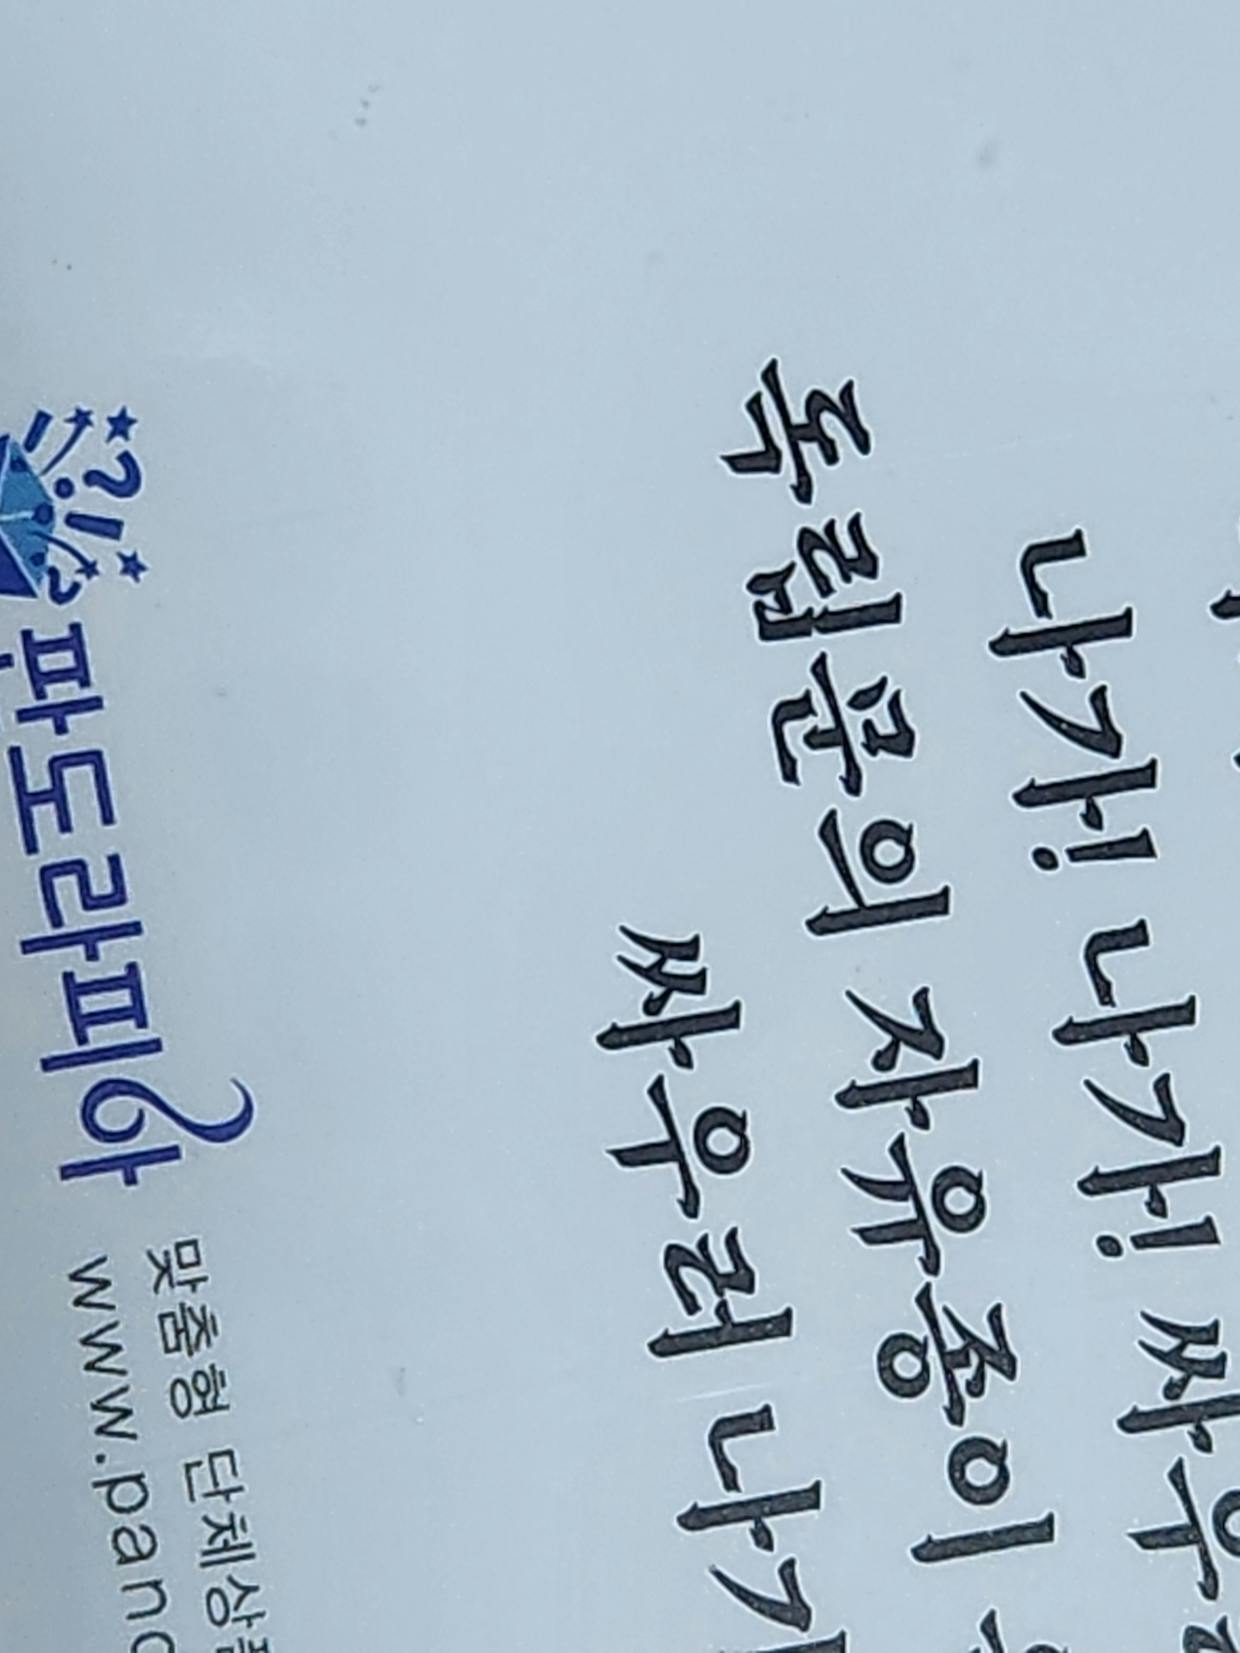 나가! 나가! 싸우
독립문의 자유종이
싸우러 나가
판도라피아
맞춤형 단체상품
www.pand